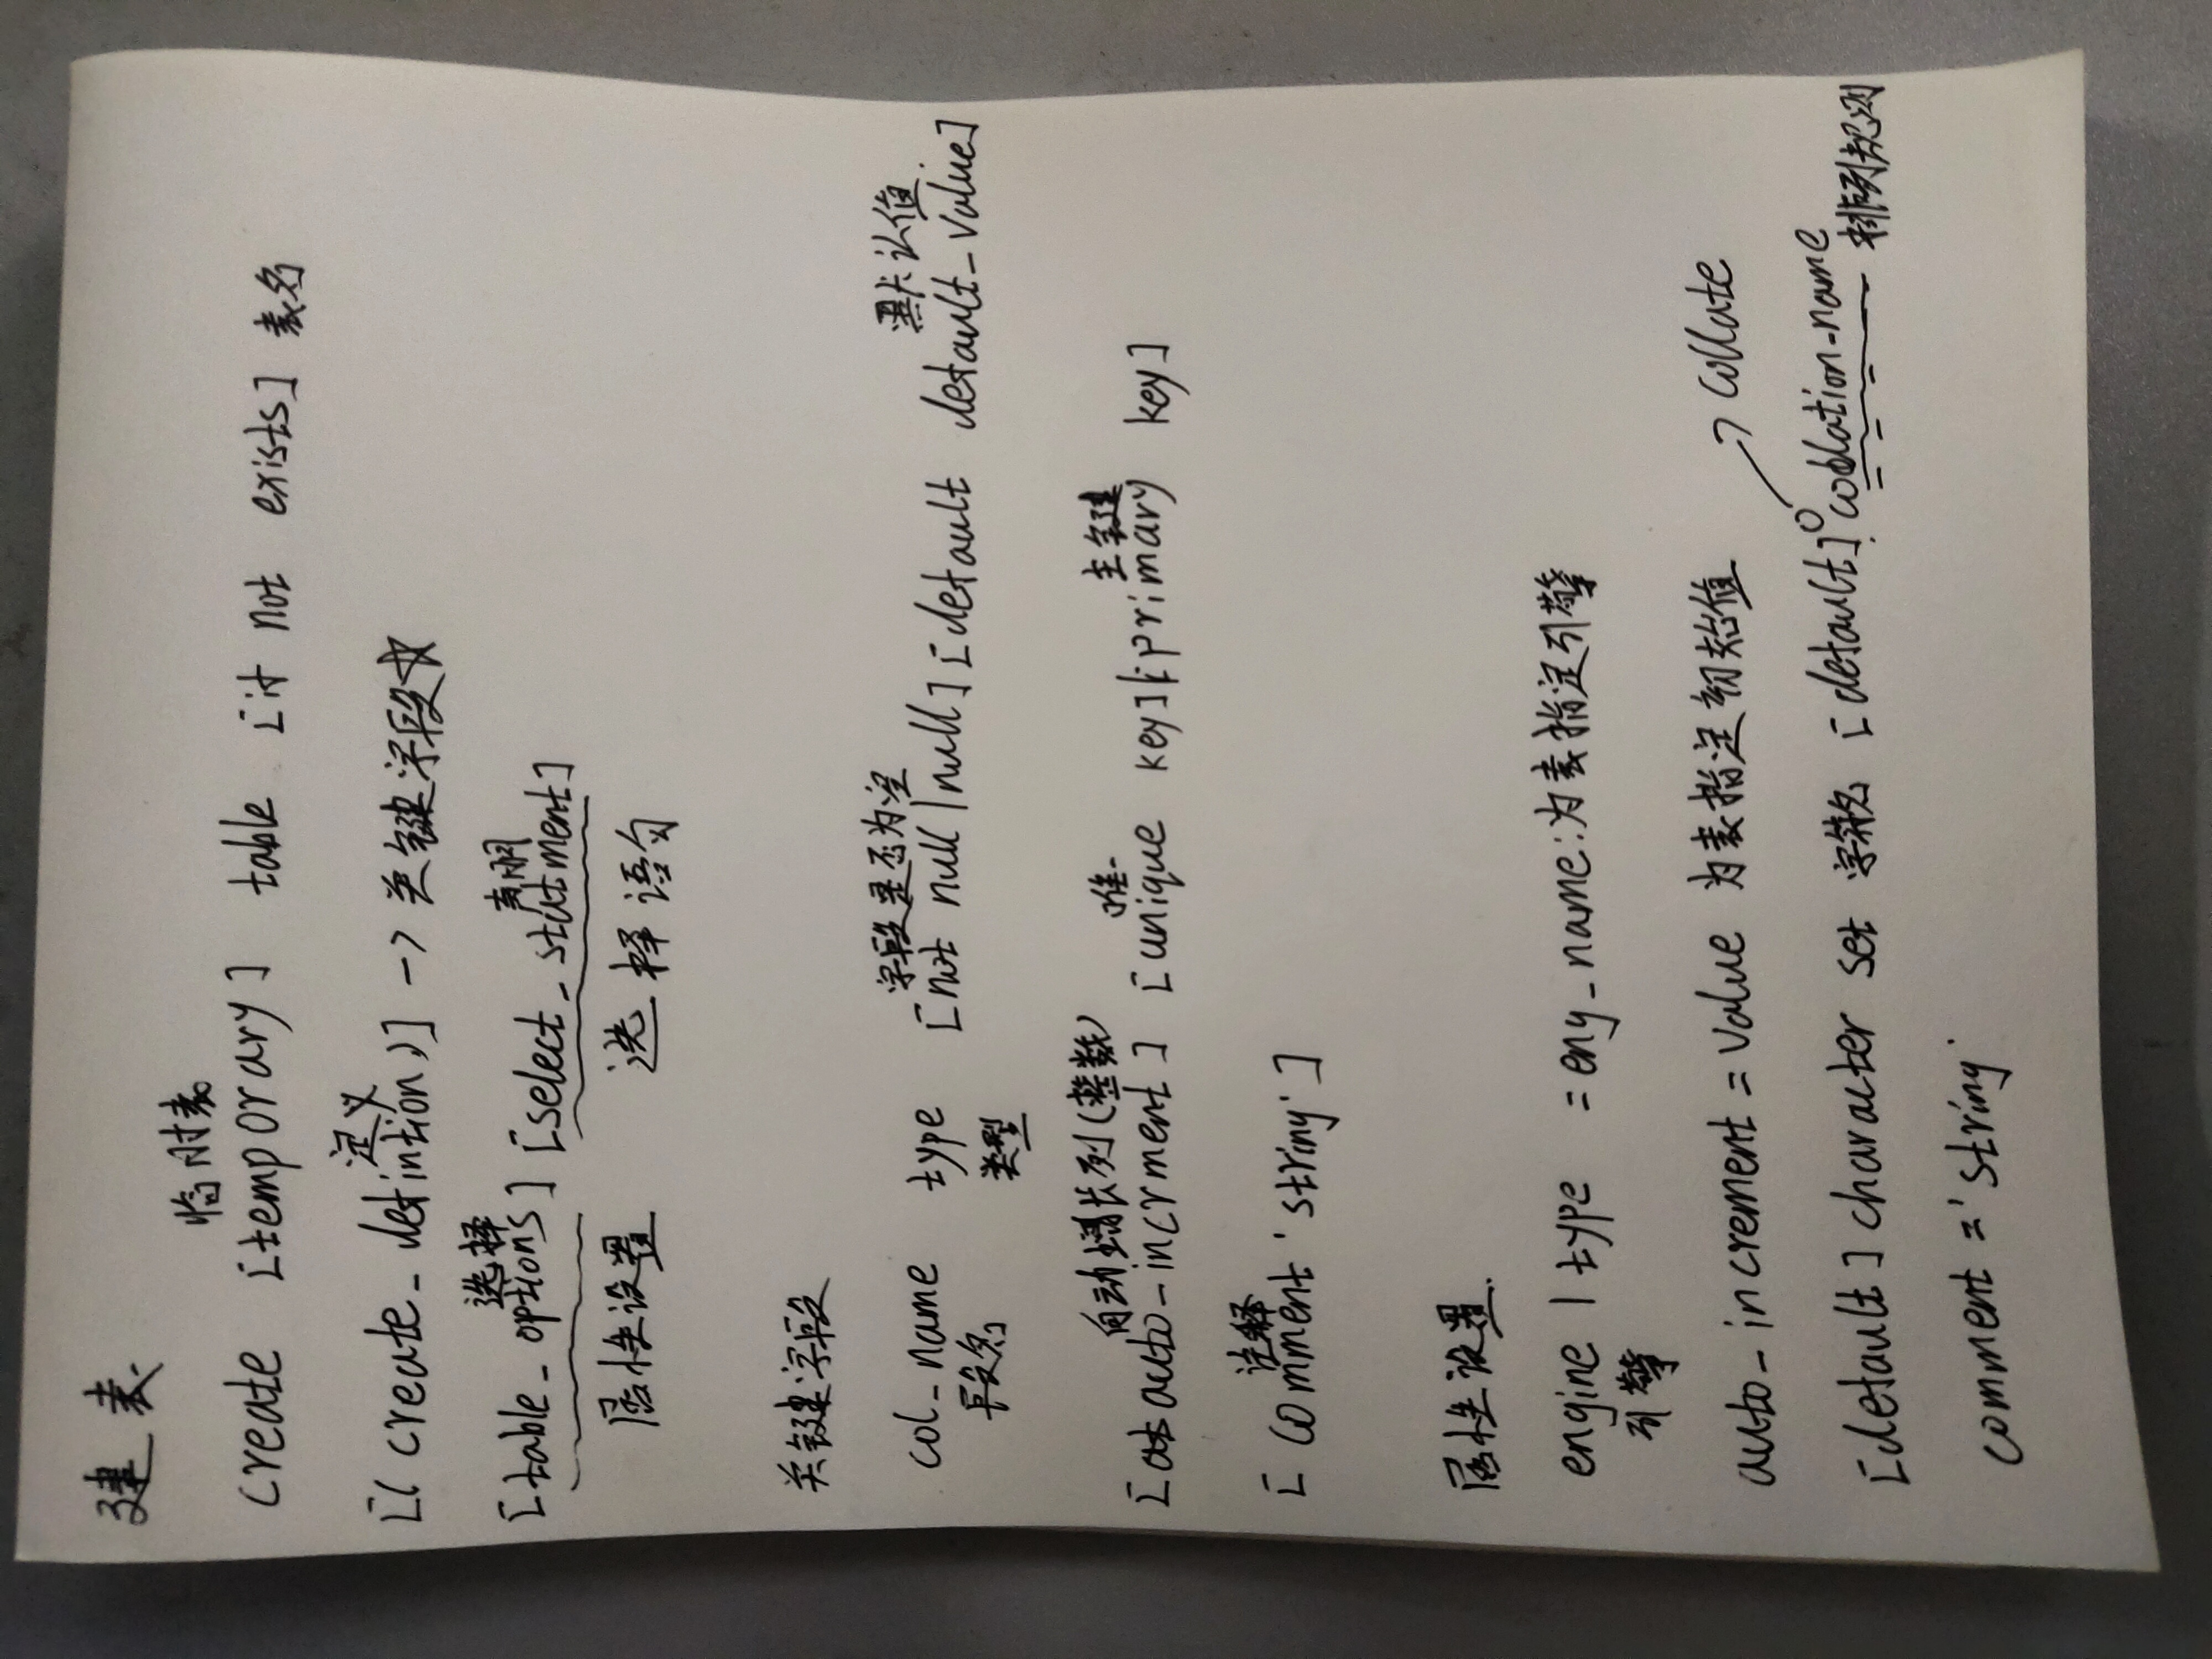 建表
临时表
create [temporary] table [if not exists] 表名
定义
[(create_defintion,)] -> 关键字段☆
选择 声明
[table_options] [select_statment]
属性设置 选择语句
关键字段
字段是否为空 默认值
col_name type [not null|null] [default default_value]
段名 类型
自动增长列(整数) 唯一 主键
[auto_incrment] [unique key]|[primary key]
注释
[comment 'string']
属性设置.
engine | type = eng_name:为表指定引擎
引擎
auto_increment = value 为表指定初始值
collate
[default] character set 字符名 [default] collation_name 排列规则
comment = 'string'